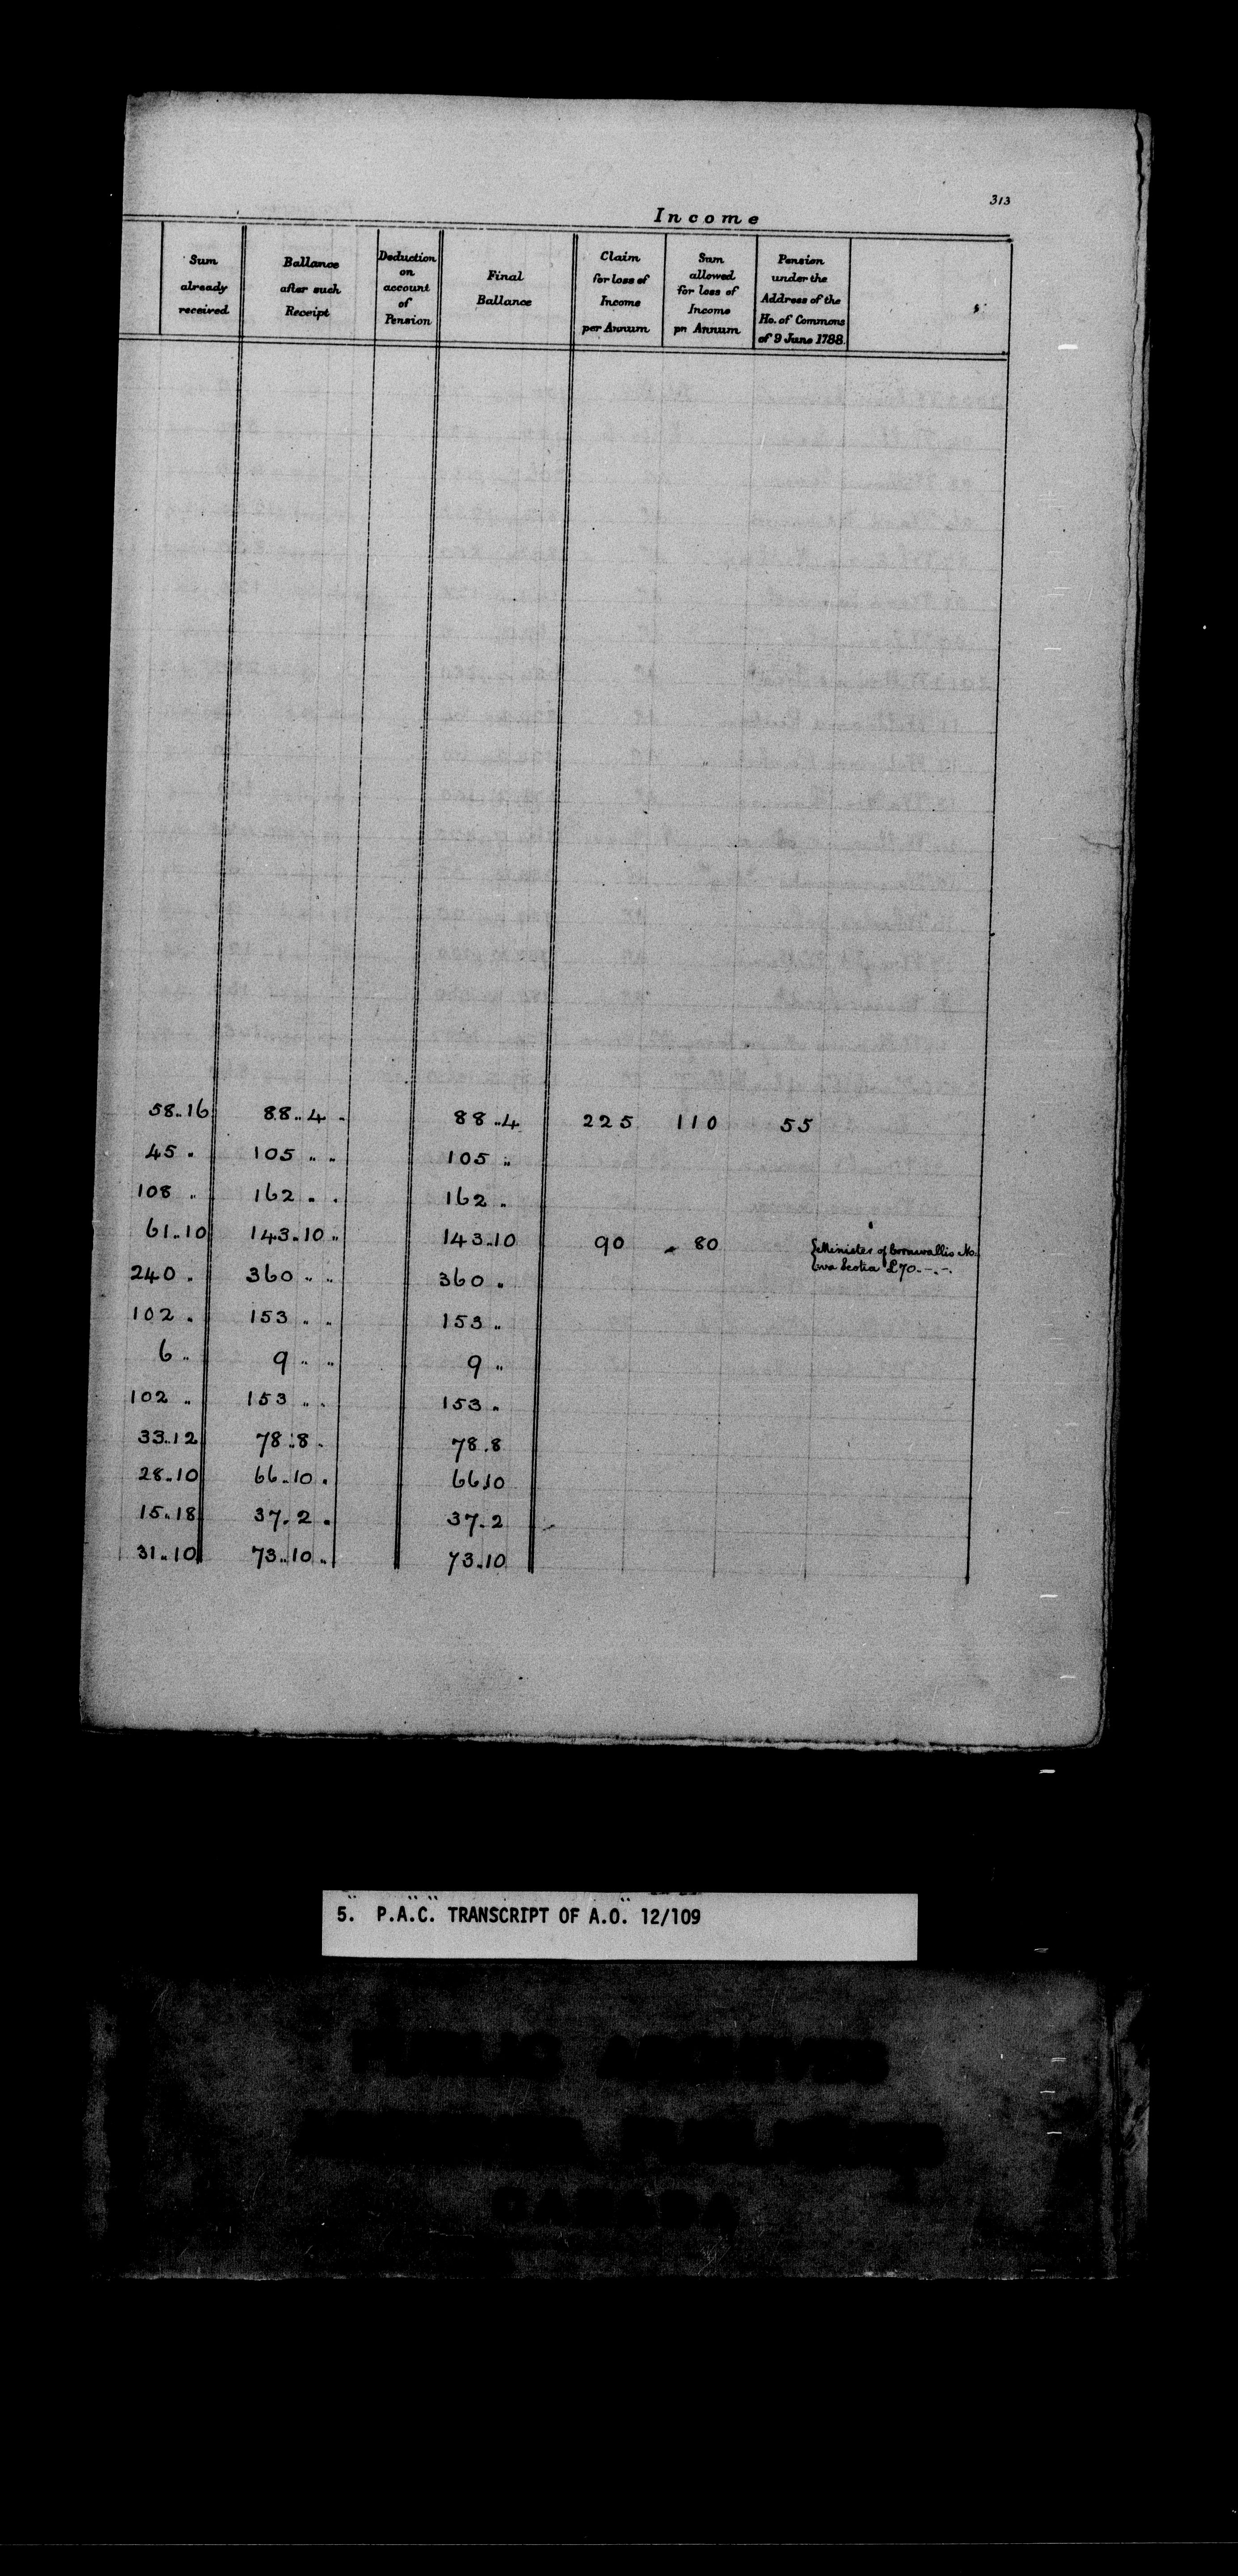 313
Income
Sum already received
Ballance after such Receipt
Deduction on account of Pension
Final Ballance
Claim for loss of Income per Annum
Sum allowed for loss of Income pr Annum
Pension under the Address of the Ho. of Commons of 9 June 1788.
58..16 88..4 . 88..4 225 110 55
45 . 105 .. .. 105 ..
108 .. 162 .. . 162 .
61..10 143..10 .. 143..10 90 .. 80 {Minister of Cornwallis No-
{va Scotia £70.-.-.
240 . 360 .. .. 360 .
102 . 153 .. .. 153 ..
6 .. 9 .. .. 9 ..
102 .. 153 .. . 153 .
33..12 78..8 . 78.8
28..10 66..10 . 66.10
15..18 37..2 . 37..2
31..10 73..10 .. 73..10
5. P.A.C. TRANSCRIPT OF A.O. 12/109
PUBLIC ARCHIVES
CANADA